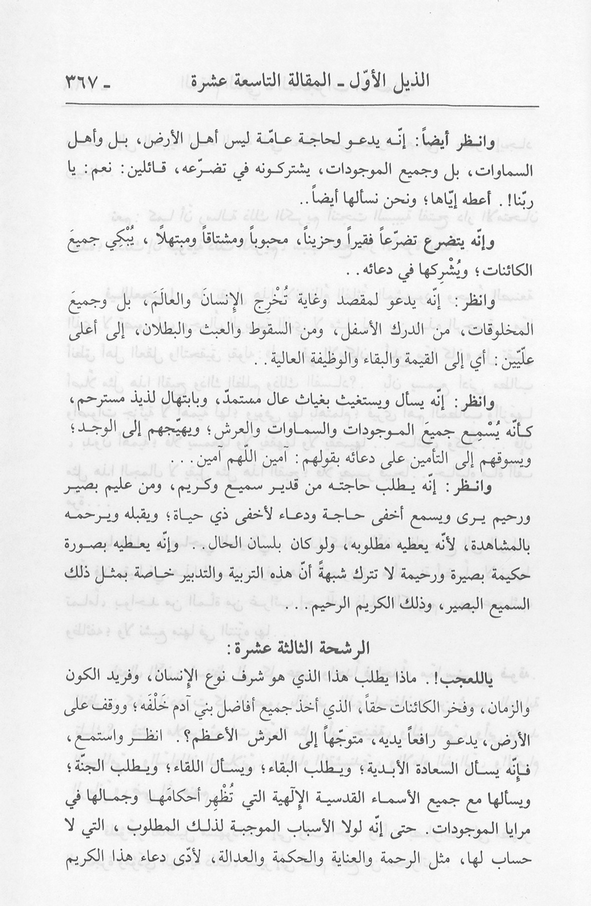 الذيل الأوّل ـ المقالة التاسعة عشرة ـ ٣٦٧
وانظر أيضاً: إنّه يدعو لحاجة عامّة ليس أهل الأرض، بـل وأهـل
السماوات، بل وجميع الموجودات، يشتركونه في تضرّعه، قـائلين: نعم: يا
ربّنا!. أعطه إيّاها؛ ونحن نسألها أيضاً..
وإنّه يتضرع تضرّعاً فقيراً وحزيناً، محبوباً ومشتاقاً ومبتهلاً ، يُبْكِي جميعَ
الكائنات؛ ويُشْرِكها في دعائه..
وانظر: إنّه يدعو لمقصد وغاية تُخْرِج الإنسانَ والعالَمَ، بل وجميعَ
المخلوقات، من الدرك الأسفل، ومن السقوط والعبث والبطلان، إلى أعلى
علّيّين: أي إلى القيمة والبقاء والوظيفة العالية..
وانظر: إنّه يسأل ويستغيث بغياث عال مستمدّ، وبابتهال لذيذ مسترحم،
كـأنّه يُسْمِـع جميعَ المـوجودات والسمـاوات والعرش؛ ويهيّجهم إلى الوجـد؛
ويسوقهم إلى التأمين على دعائه بقولهم: آمين اللّهم آمين...
وانظر: إنّه يطلب حاجته من قدير سميـع وكـريم، ومن عليم بصير
ورحيم يـرى ويسمع أخفى حـاجـة ودعـاء لأخفى ذي حيـاة؛ ويقبله ويـرحمـه
بالمشاهدة، لأنّه يعطيه مطلوبه، ولو كان بلسان الحال.. وإنّه يعـطيه بصـورة
حكيمة بصيرة ورحيمة لا تترك شبهةً أنّ هذه التربية والتدبير خـاصة بمثـل ذلك
السميع البصير، وذلك الكريم الرحيم...
الرشحة الثالثة عشرة:
ياللعجب!. ماذا يطلب هذا الذي هو شرف نوع الإنسان، وفريد الكون
والزمان، وفخر الكائنات حقاً، الذي أخذ جميع أفاضل بني آدم خَلْفَه؛ ووقف على
الأرض، يدعـو رافعـاً يديـه، متوجّهاً إلى العرش الأعظم؟. انظـر واستمـع،
فـإنّـه يسـأل السعادة الأبـدية؛ ويـطلب البقاء؛ ويسـأل اللقاء؛ ويـطلب الجنّـة؛
ويسألها مع جميع الأسمـاء القدسيـة الإلٓهية التي تُظْهِر أحكامَهـا وجمالها في
مرايا الموجودات. حتى إنّه لولا الأسباب الموجبة لذلـك المطلوب ، التي لا
حساب لها، مثل الرحمة والعناية والحكمة والعدالة، لأدّى دعاء هـذا الكريم